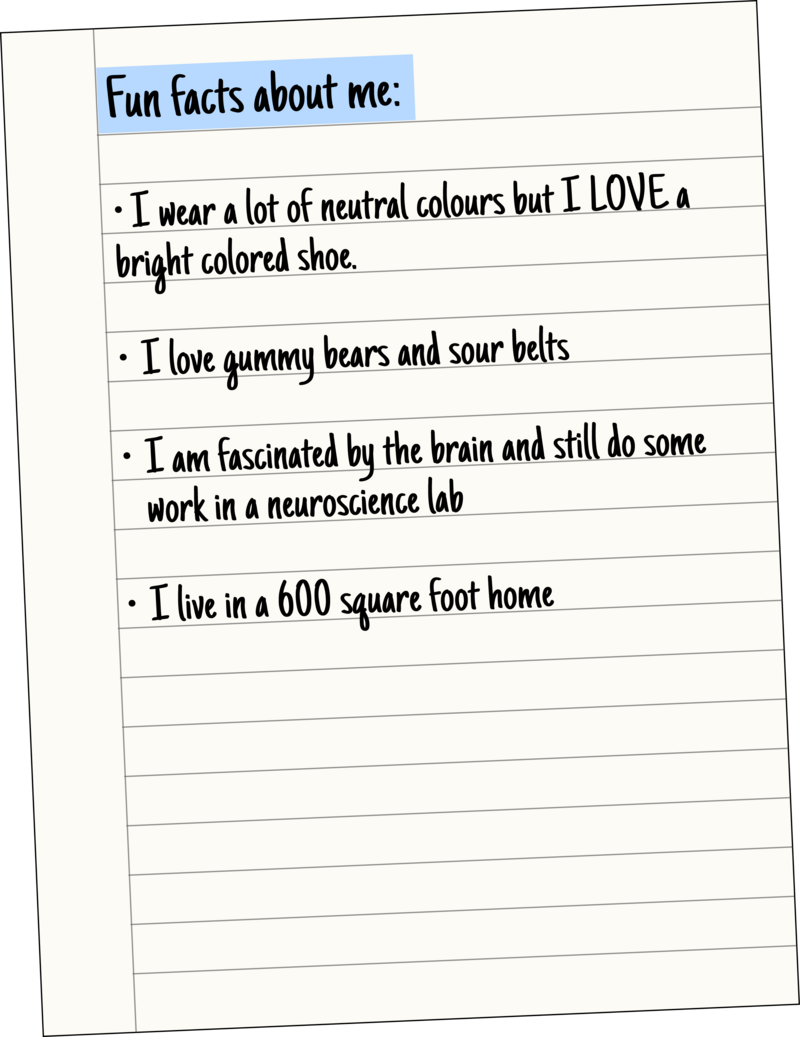 Fun facts about me:
• I wear a lot of neutral colours but I LOVE a
bright colored shoe.
• I love gummy bears and sour belts
• I am fascinated by the brain and still do some
work in a neuroscience lab
• I live in a 600 square foot home